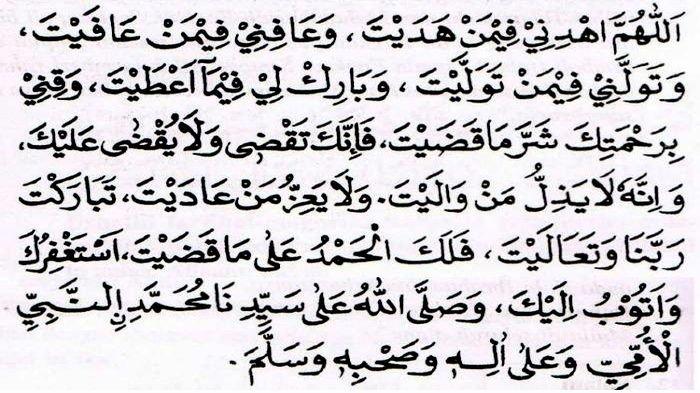 اَللّٰهُمَّ اهْدِنِيْ فِيْمَنْ هَدَيْتَ، وَعَافِنِيْ فِيْمَنْ عَافَيْتَ،
وَتَوَلَّنِيْ فِيْمَنْ تَوَلَّيْتَ، وَبَارِكْ لِيْ فِيْمَآ اَعْطَيْتَ، وَقِنِيْ
بِرَحْمَتِكَ شَرَّ مَا قَضَيْتَ، فَاِنَّكَ تَقْضِى وَلَا يُقْضٰى عَلَيْكَ،
وَاِنَّهٗ لَا يَذِلُّ مَنْ وَالَيْتَ. وَلَا يَعِزُّ مَنْ عَادَيْتَ، تَبَارَكْتَ
رَبَّنَا وَتَعَالَيْتَ، فَلَكَ الْحَمْدُ عَلٰى مَا قَضَيْتَ، اَسْتَغْفِرُكَ
وَاَتُوْبُ اِلَيْكَ، وَصَلَّى اللّٰهُ عَلٰى سَيِّدِنَا مُحَمَّدٍ اِلنَّبِيِّ
الْاُمِّيِّ وَعَلٰى اٰلِهٖ وَصَحْبِهٖ وَسَلَّمَ.